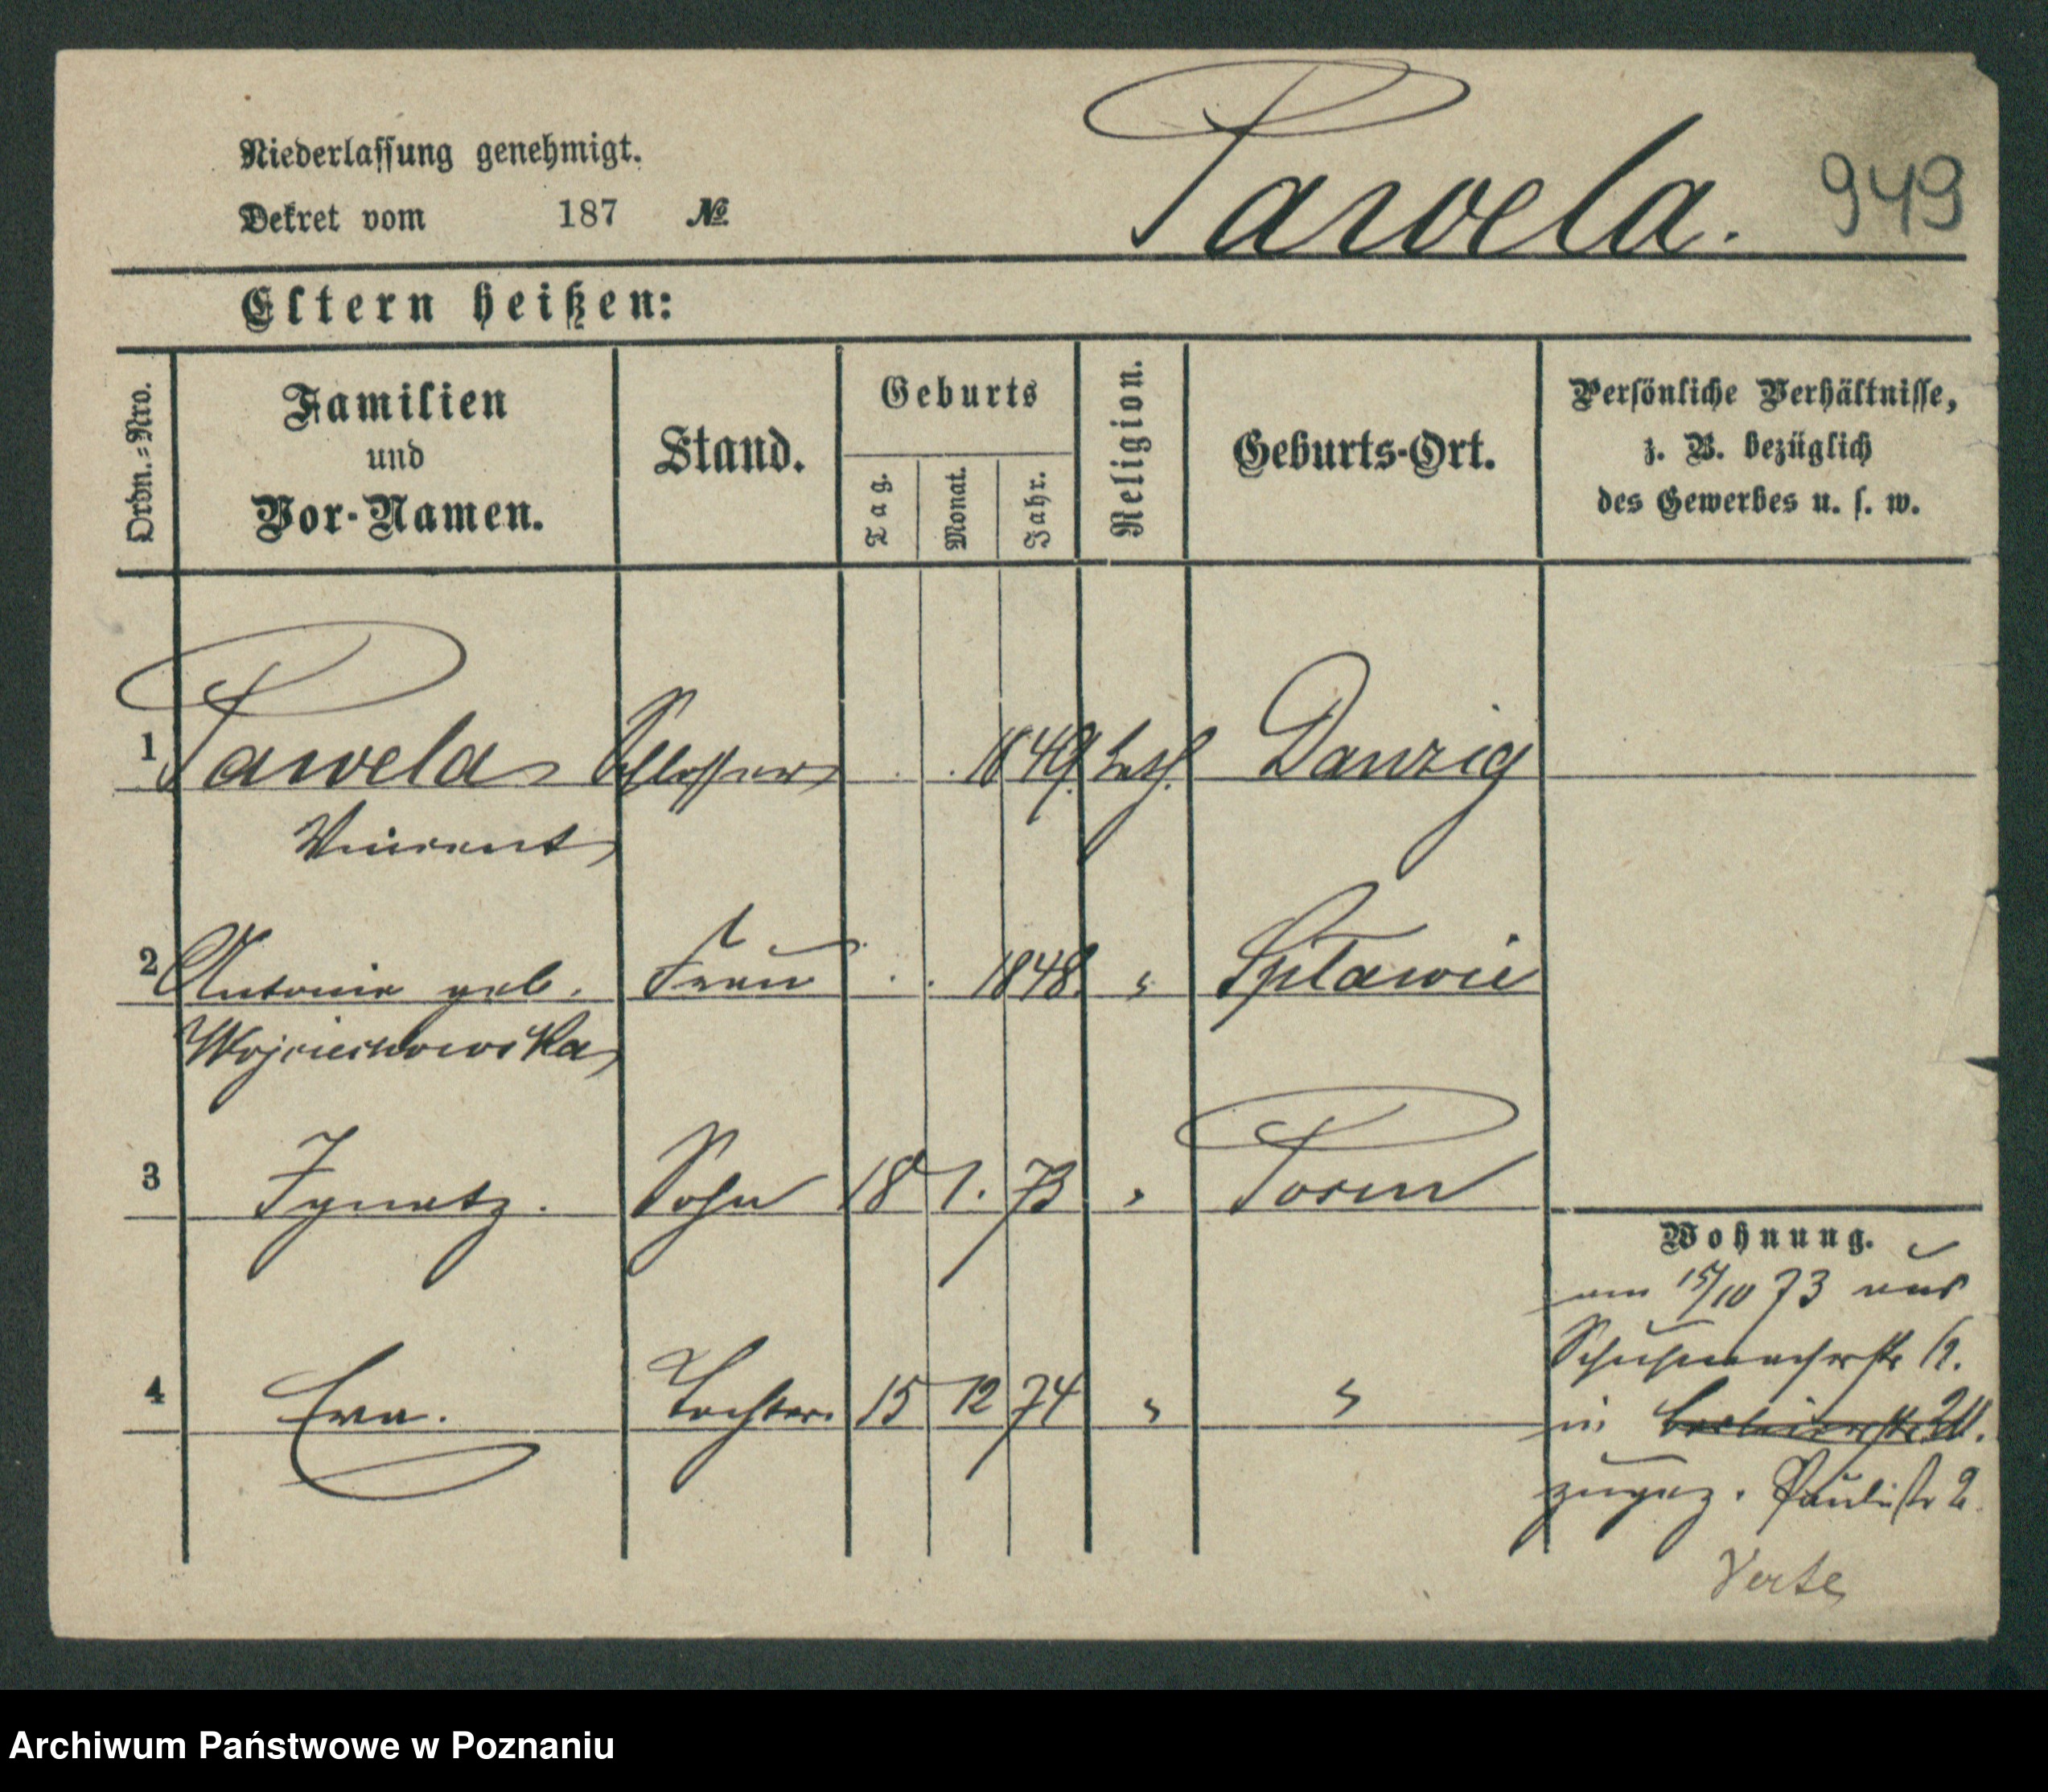 Niederlassung genehmigt.
Dekret vom 187 №
Pawela.
949
Eltern heißen:
Ordn.-Nro.
Familien
und
Vor-Namen.
Stand.
Geburts
Tag.
Monat.
Jahr.
Religion.
Geburts-Ort.
Persönliche Verhältnisse,
z. B. bezüglich
des Gewerbes u. s. w.
1 Pawela Schlosser . . 1849. kath. Danzig
Vincent
2 Antonie geb. Frau . . 1848. " Spławie
Wojciechowska
3 Ignatz. Sohn 18 1. 73 " Posen
4 Eva. Tochter. 15 12 74 " "
Wohnung.
am 15/10 73 aus
Schuhmacherstr 12.
in
zugez. Paulistr 2.
Verte
Archiwum Państwowe w Poznaniu